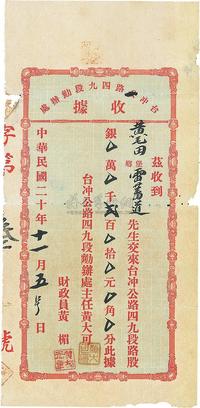 台冲公路四九段勷辦處
收據
茲收到
黃毛田 鄉堡
雷萬道 先生交來台冲公路四九段路股
銀0萬0千弍百0拾0元0角0分此據
台冲公路四九段勷辦處主任黃大可
財政員黃楣
中華民國二十年十一月五日
字第
號